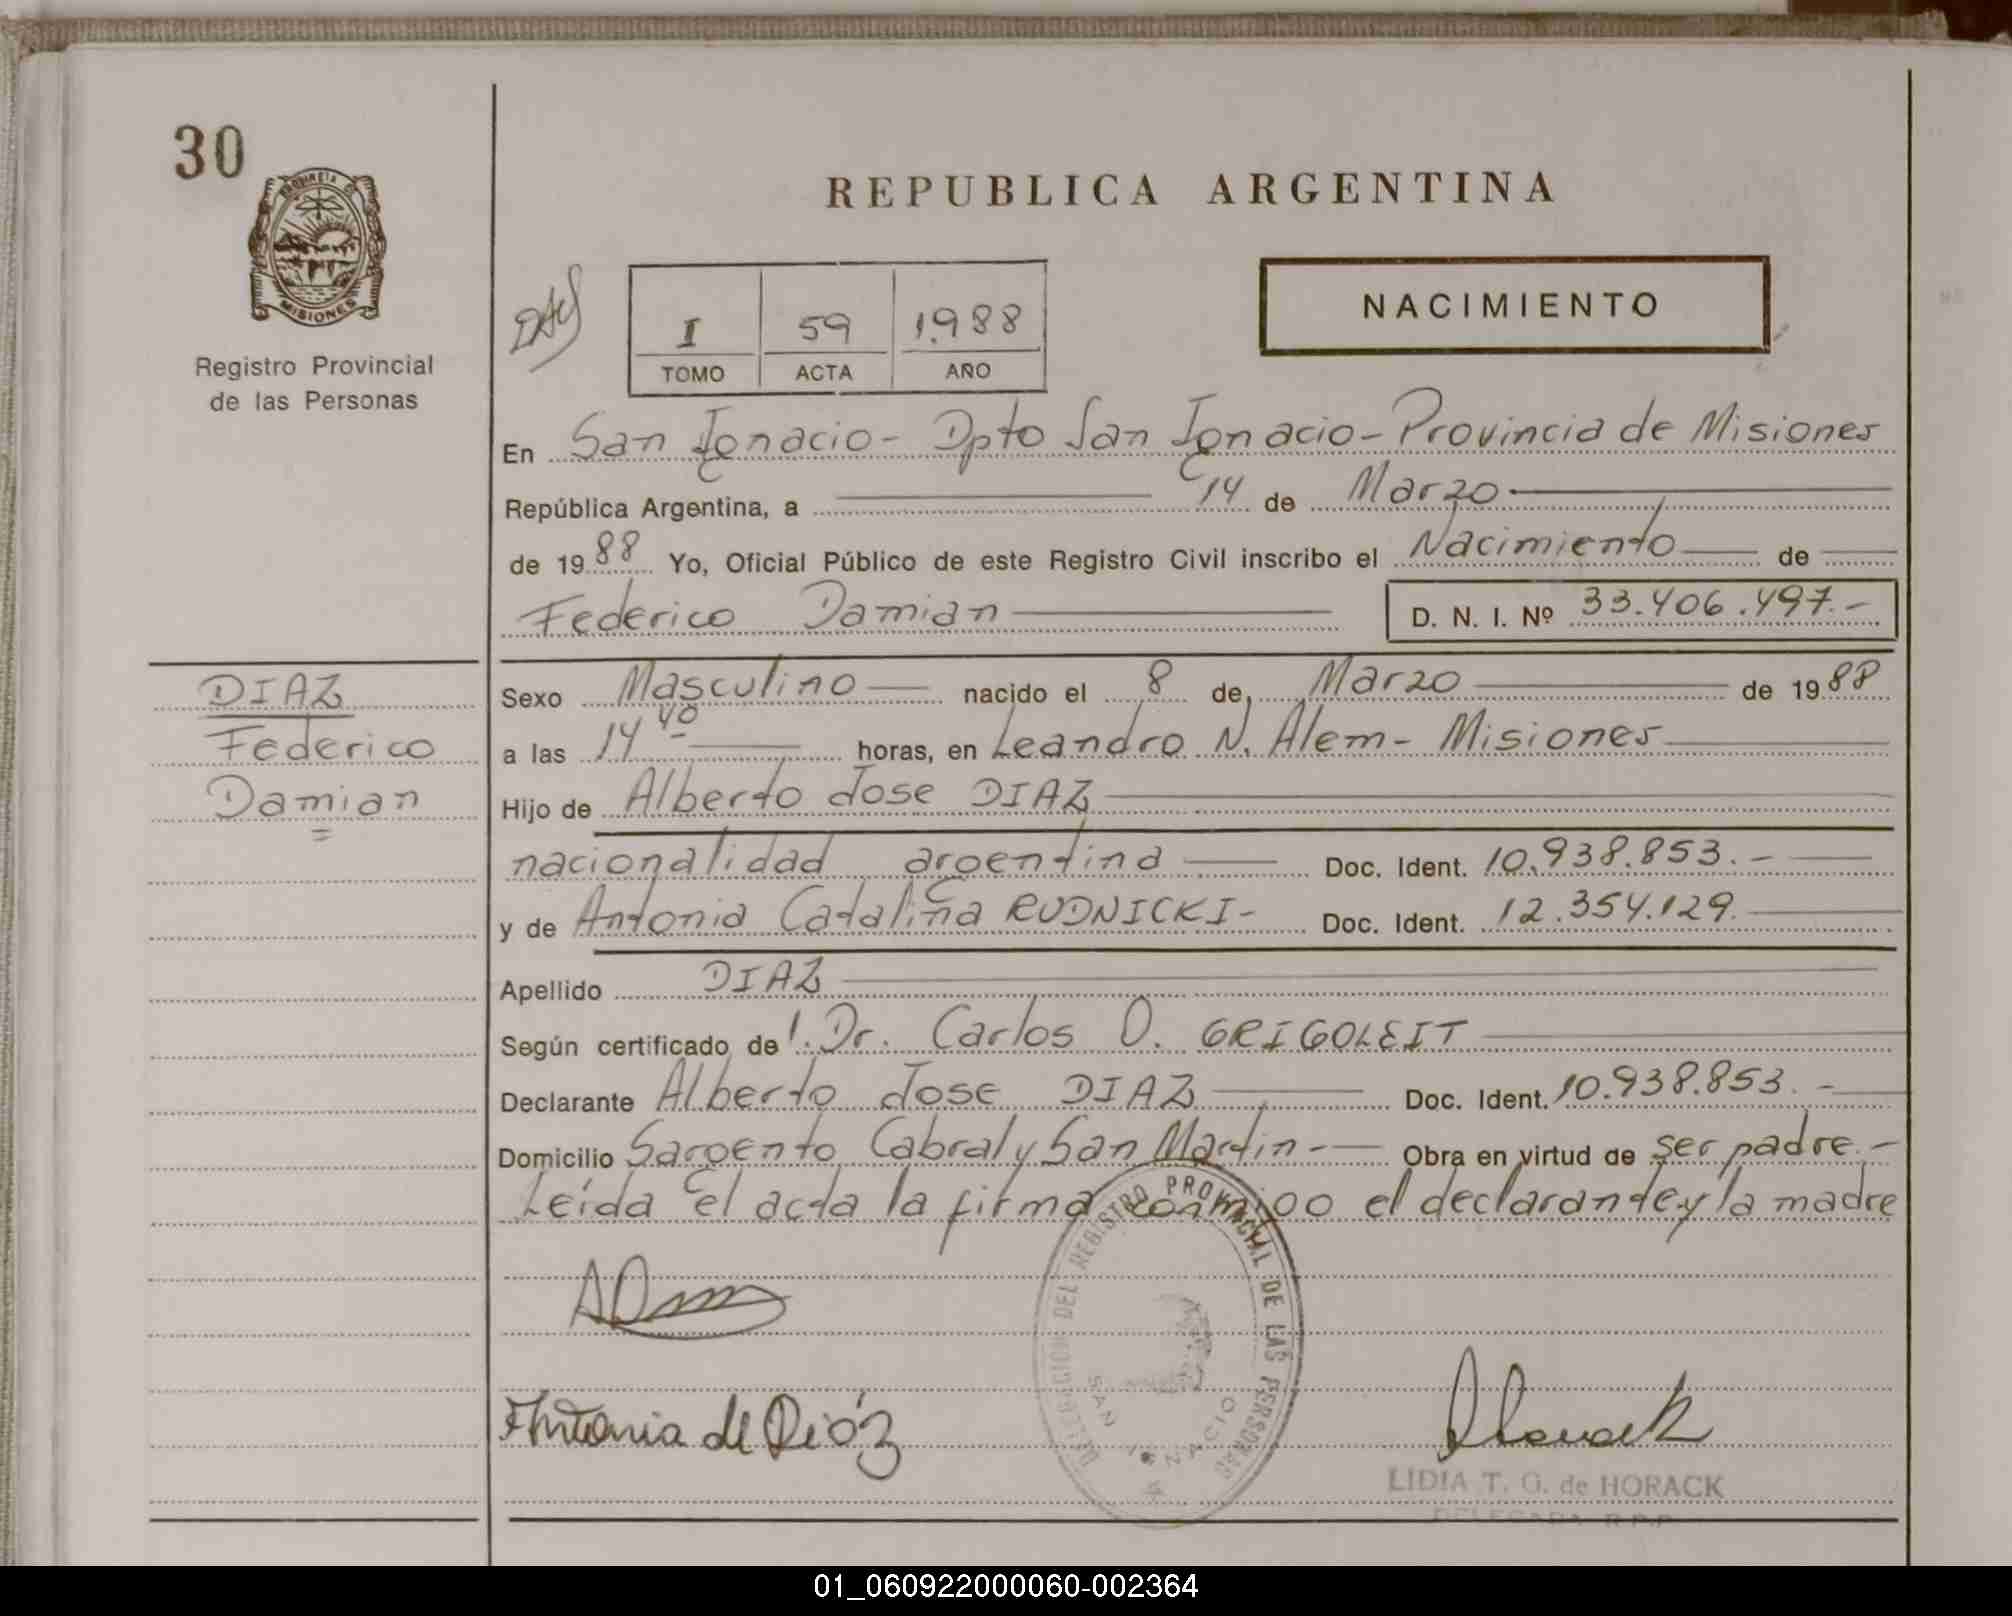 30
PROVINCIA DE
MISIONES
Registro Provincial
de las Personas
REPUBLICA ARGENTINA
I 59 1.988
TOMO ACTA AÑO
NACIMIENTO
En San Ignacio - Dpto San Ignacio - Provincia de Misiones
República Argentina, a 14 de Marzo
de 1988 Yo, Oficial Público de este Registro Civil inscribo el Nacimiento de
Federico Damian D. N. I. Nº 33.406.497.-
DIAZ
Federico
Damian
Sexo Masculino nacido el 8 de Marzo de 1988
a las 14 40 horas, en Leandro N. Alem - Misiones
Hijo de Alberto Jose DIAZ
nacionalidad argentina Doc. Ident. 10.938.853.-
y de Antonia Catalina RUDNICKI - Doc. Ident. 12.354.129.
Apellido DIAZ
Según certificado de Dr. Carlos O. GRIGOLEIT
Declarante Alberto Jose DIAZ Doc. Ident. 10.938.853.-
Domicilio Sargento Cabral y San Martin - Obra en virtud de ser padre.-
Leída el acta la firma conmigo el declarante y la madre
DELEGACION DEL REGISTRO PROVINCIAL DE LAS PERSONAS
SAN IGNACIO
Antonia de Diáz
LIDIA T. G. de HORACK
DELEGADA R.P.P.
01_060922000060-002364